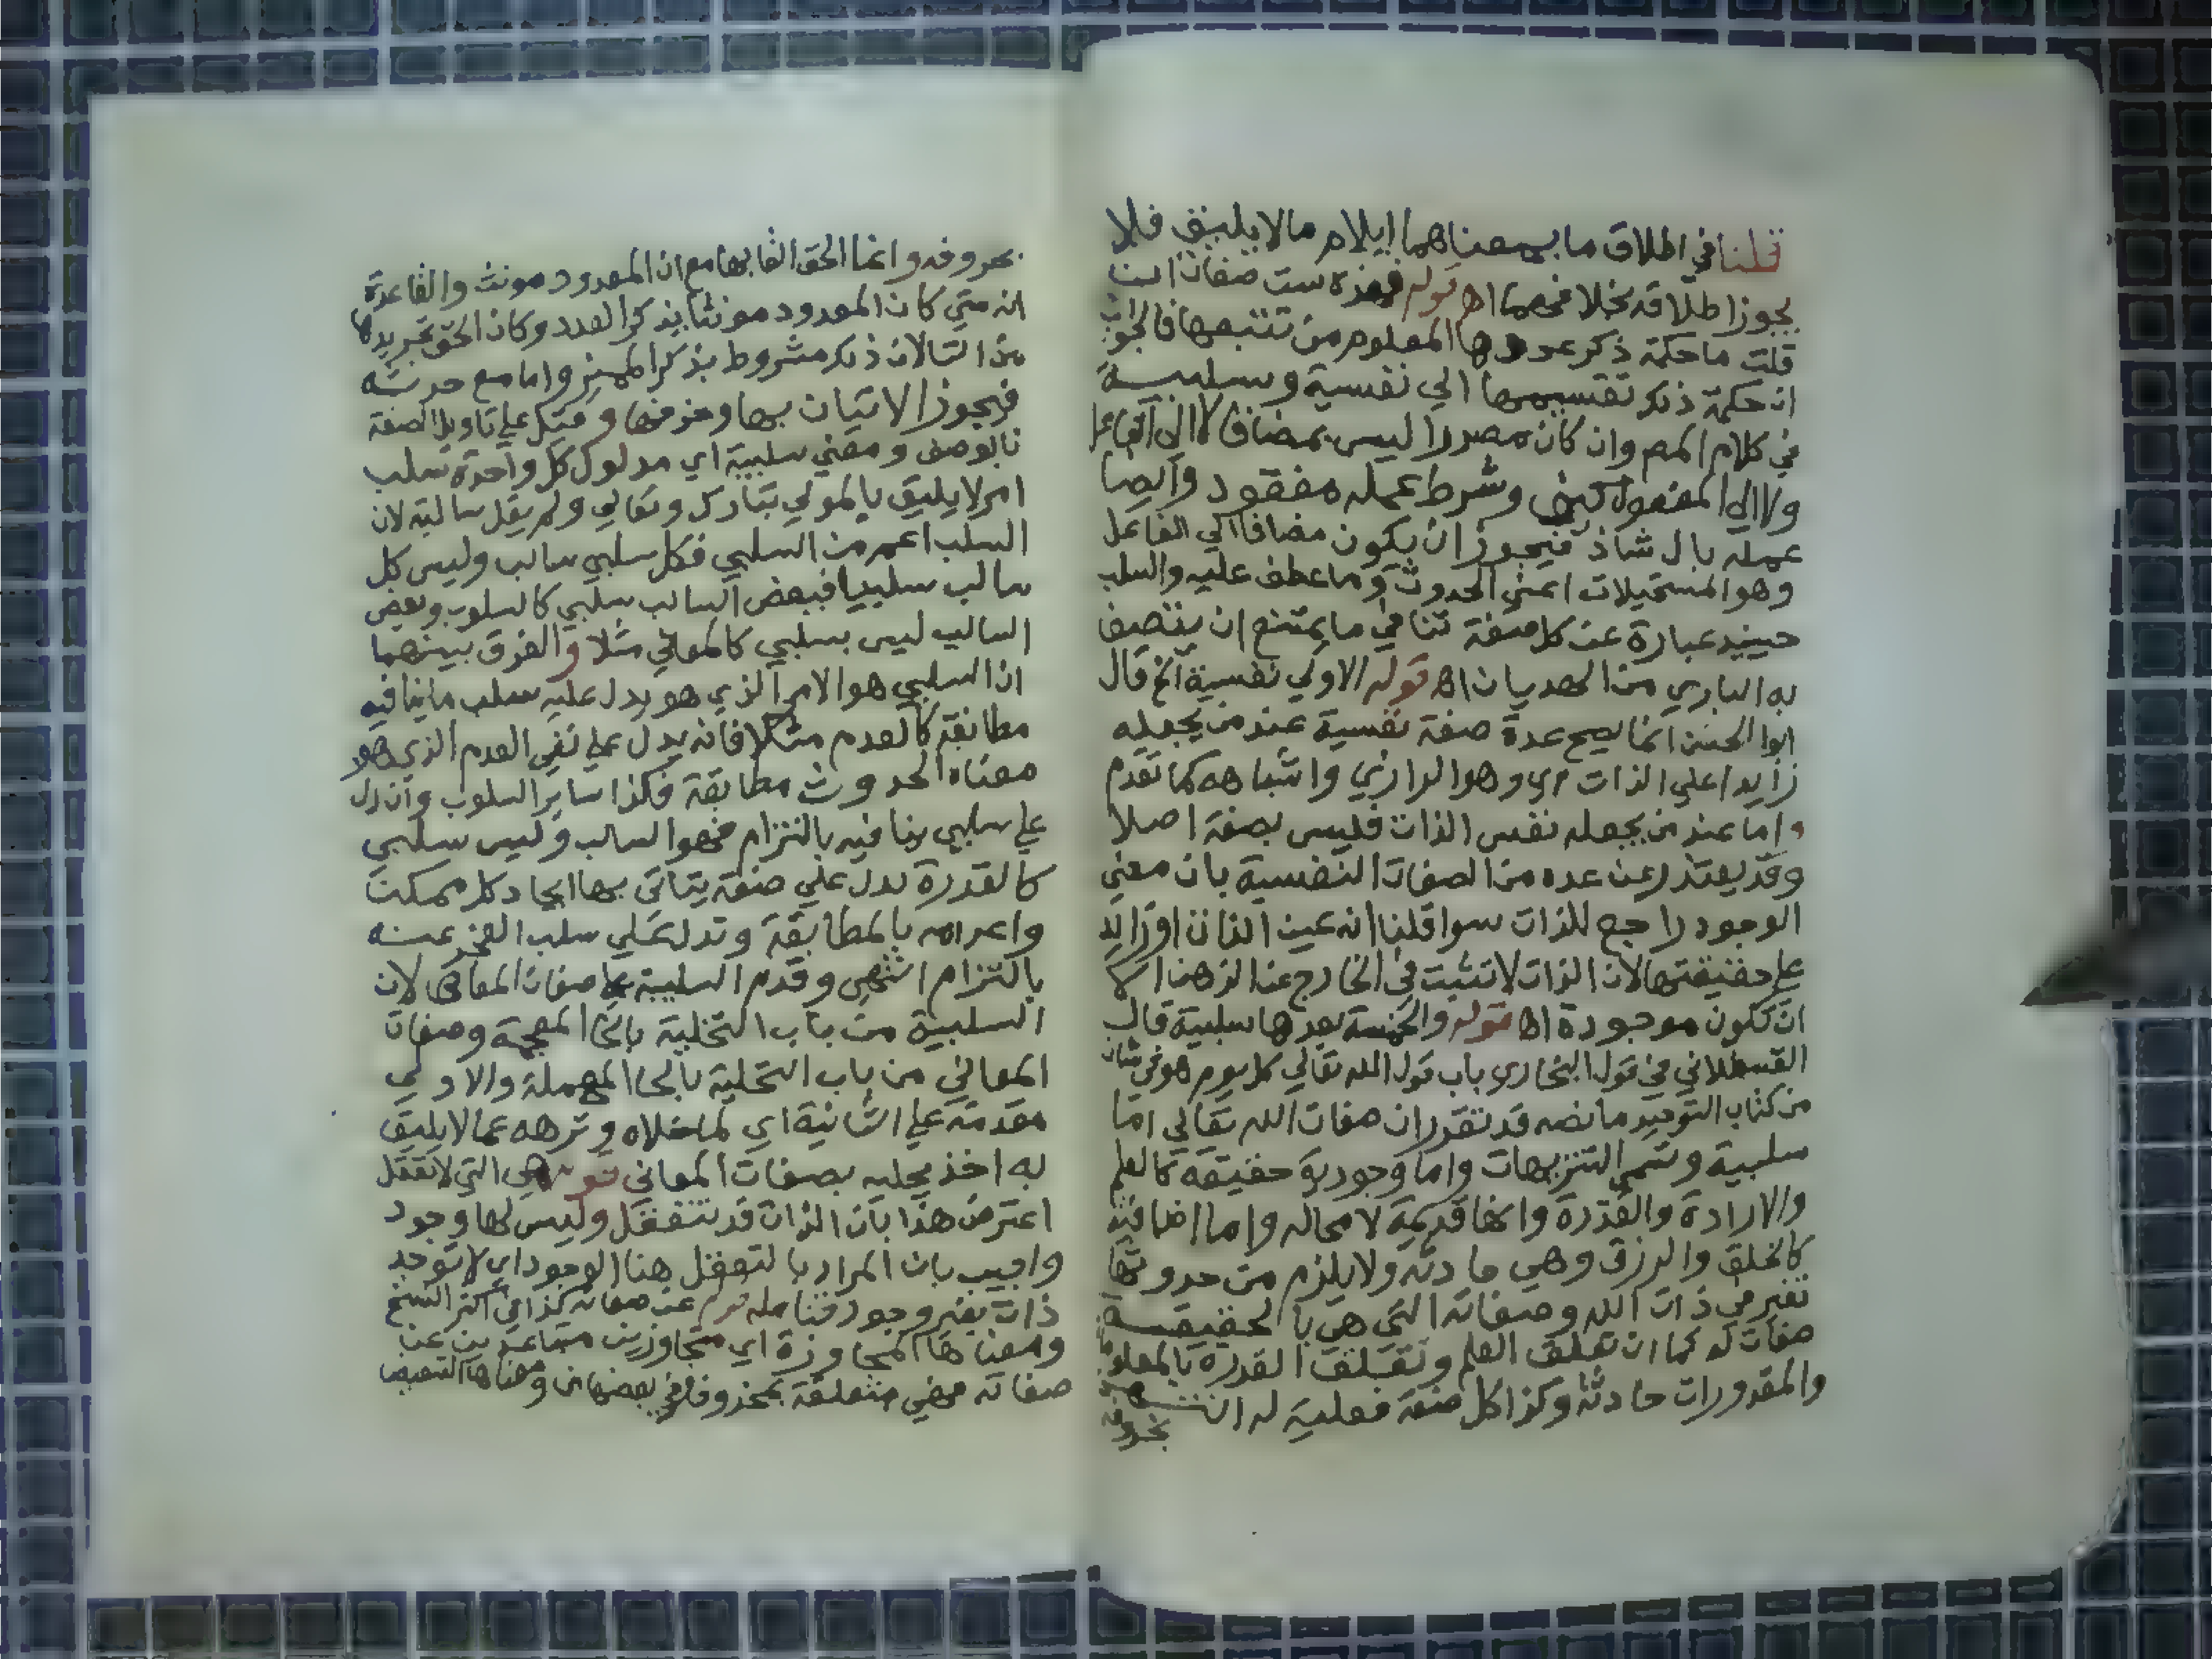 قلنا في اطلاق ما بمعناهما ايلام مالا يليق فلا
يجوز اطلاقه بخلافهما اهـ قوله فهذه ست صفات ان
قلت ما حكمة ذكر عددها المعلوم من تتبعها فالجواب
ان حكمة ذلك تقسيمها الي نفسية وسلبية
في كلام المص وان كان مصدرا ليس بمضاف لا الى الفاعل
ولا الى المفعول وشرط عمله مفقود وايضا
عمله بال شاذ فيجوز ان يكون مضافا الي الفاعل
وهو المستحيلات اعني الحدوث وما عطف عليه والسلب
حينيد عبارة عن كل صفة تنافي ما يمتنع ان يتصف
به الباري من اهـ قوله الاولي نفسية الخ قال
ابوا الحسن انما يصح عدة صفة نفسية عند من يجعله
زايدا علي الذات وهو الرازي واشباهه كما تقدم
واما عند من يجعله نفس الذات فليس بصفة اصلا
وقد يعتذر عن عده من الصفات النفسية بان معني
الوجود راجع للذات سوا قلنا انه عين الذات او زايد
علي حقيقتها لان الذات لا تثبت في الخارج عند الذهن الا
ان تكون موجودة اهـ قوله والخمسة بعدها سلبية قال
القسطلاني في قول البخاري باب قول الله تعالي كل يوم هو في شان
من كتاب التوحيد ما نصه قد تقرر ان صفات الله تعالي اما
سلبية وتسمي التنزيهات واما وجودية حقيقة كالعلم
والارادة والقدرة وانها قديمة لا محاله واما اضافية
كالخلق والرزق وهي حادثه ولا يلزم من حدوثها
تغير في ذات الله وصفاته التي هي بالحقيقة
صفات له كما ان تعلق العلم وتعلق القدرة بالمعلومات
والمقدورات حادثه وكذا كل صفة فعلية له انتهي
بحروفه
بحروفه وانما الحق التا بها مع ان المعدود مونث والقاعدة
انه متي كان المعدود مونثا يذكر العدد وكان الحق تجريدها
من التا لان ذلك مشروط بذكر المميز واما مع حذفه
فيجوز الاتيان بها وحذفها و علي تاويل الصفة
بالوصف ومعني سلبية اي مدلول كل واحدة سلب
امر لا يليق بالمولي تبارك وتعالي ولم يقل سالبة لان
السلب اعم من السلبي فكل سلبي سالب وليس كل
سالب سلبيا فبعض السالب سلبي كالسلوب وبعض
السالب ليس بسلبي كالمعاني مثلا والفرق بينهما
ان السلبي هو الامر الذي هو يدل عليه سلب ما ينافيه
مطابقة كالعدم مثلا فانه يدل علي نفي العدم الذي هو
معناه الحدوث مطابقة فكذا ساير السلوب وان دل
علي سلبي ينافيه بالتزام فهو السالب وليس سلبي
كالقدرة تدل علي صفة يتاتى بها ايجاد كل ممكن
واعدامه بالمطابقة وتدل علي سلب العجز عنه
بالتزام انتهي وقدم السلبية علي صفات المعاني لان
السلبية من باب التخلية بالخا المعجمة وصفات
المعاني من باب التحلية بالحا المهملة والاولي
مقدمة علي الثانية اي لما خلاه ونزهه عما لا يليق
به اخذ يحليه بصفات المعاني قوله وهي التي لا تعقل
اعترض هذا بان الذات قد تتعقل وليس لها وجود
واجيب بان المراد بالتعقل هنا الوجود اي لا توجد
ذات بغير وجود قوله عن صفاته كذا في اكثر النسخ
ومعناها المجاوزة اي متجاوزين متباعدين عن
صفاته فهي متعلقة بمحذوف وفي بعضها من ومعناها التبعيض